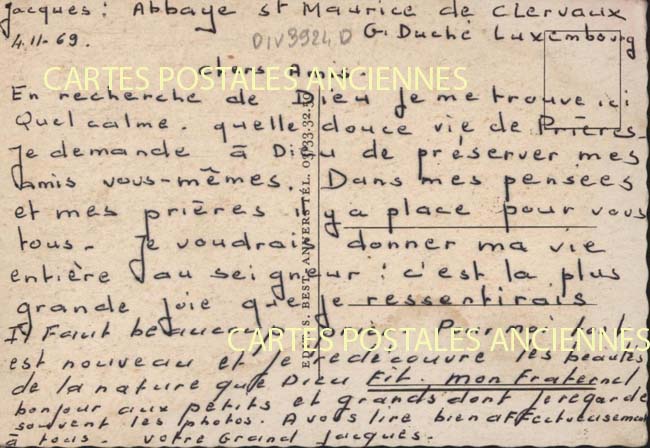 Jacques: Abbaye st Maurice de Clervaux
4.11-69. DIV9924D G. Duché Luxembourg
CARTES POSTALES ANCIENNES
Chers Amis.
En recherche de Dieu je me trouve ici
Quel calme. quelle douce vie de Prières
Je demande à Dieu de préserver mes
amis vous-mêmes. Dans mes pensées
et mes prières il y a place pour vous
tous. Je voudrais donner ma vie
entière au seigneur: c'est la plus
grande joie que je ressentirais
Il Faut beaucoup Pour moi tout
CARTES POSTALES ANCIENNES
est nouveau et je redécouvre les beautés
de la nature que Dieu Fit. Mon Fraternel
bonjour aux petits et grands dont je regarde
souvent les photos. A vous lire bien affectueusement
à tous. votre Grand Jacques.
BEST. ANVERS TÉL. 03/33.32.30